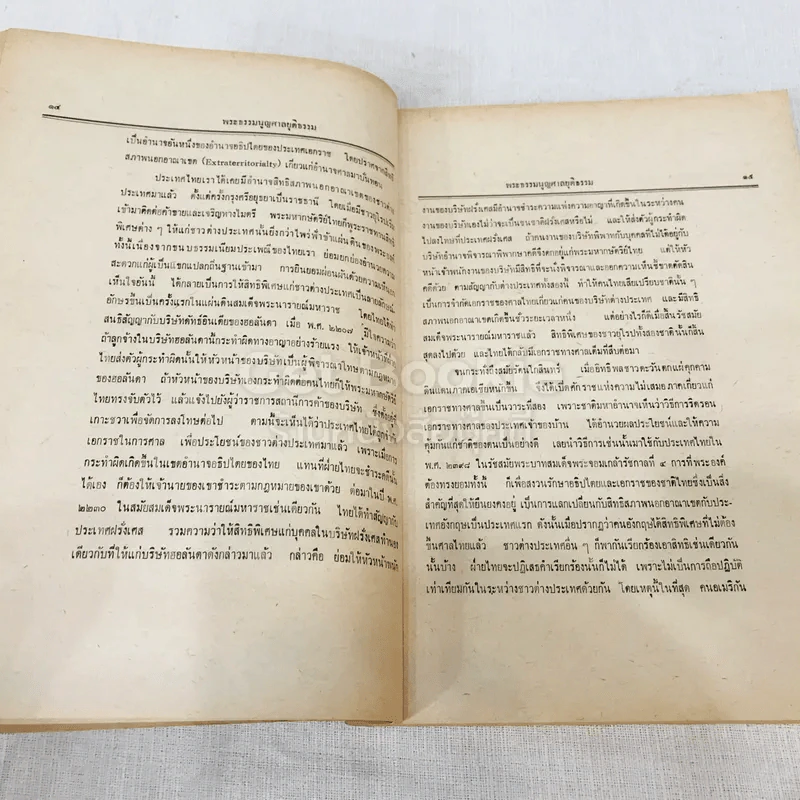 ๑๔
พระธรรมนูญศาลยุติธรรม
เป็นอำนาจอันหนึ่งของอำนาจอธิปไตยของประเทศเอกราช โดยปราศจากสิทธิ
สภาพนอกอาณาเขต (Extraterritorialty) เกี่ยวแก่อำนาจศาลมาบั่นทอน
ประเทศไทยเราได้เคยมีอำนาจสิทธิสภาพนอกอาณาเขตของชาวต่าง
ประเทศมาแล้ว ตั้งแต่ครั้งกรุงศรีอยุธยาเป็นราชธานี โดยเมื่อมีชาวยุโรป
เข้ามาติดต่อค้าขายและเจริญทางไมตรี พระมหากษัตริย์ไทยก็พระราชทานสิทธิ
พิเศษต่าง ๆ ให้แก่ชาวต่างประเทศนั้นยิ่งกว่าไพร่ฟ้าข้าแผ่นดินของพระองค์
ทั้งนี้เนื่องจากขนบธรรมเนียมประเพณีของไทยเรา ย่อมยกย่องอำนวยความ
สะดวกแก่ผู้เป็นแขกแปลกถิ่นฐานเข้ามา การยินยอมผ่อนผันด้วยความเห็นอก
เห็นใจอันนี้ ได้กลายเป็นการให้สิทธิพิเศษแก่ชาวต่างประเทศเป็นลายลักษณ์
อักษรขึ้นเป็นครั้งแรกในแผ่นดินสมเด็จพระนารายณ์มหาราช โดยไทยได้ทำ
สนธิสัญญากับบริษัทดัทช์อินเดียของฮอลันดา เมื่อ พ.ศ. ๒๒๐๗ มีใจความว่า
ถ้าลูกจ้างในบริษัทฮอลันดานี้กระทำผิดทางอาญาอย่างร้ายแรง ให้เจ้าหน้าที่ฝ่าย
ไทยส่งตัวผู้กระทำผิดนั้นให้หัวหน้าของบริษัทเป็นผู้พิจารณาโทษตามกฎหมาย
ของฮอลันดา ถ้าหัวหน้าของบริษัทเองกระทำผิดต่อคนไทยก็ให้พระมหากษัตริย์
ไทยทรงขับตัวไว้ แล้วแจ้งไปยังผู้ว่าราชการสถานีการค้าของบริษัท ซึ่งตั้งอยู่ที่
เกาะชวาเพื่อจัดการลงโทษต่อไป ตามนี้จะเห็นได้ว่าประเทศไทยได้ถูกจำกัด
เอกราชในการศาล เพื่อประโยชน์ของชาวต่างประเทศมาแล้ว เพราะเมื่อการ
กระทำผิดเกิดขึ้นในเขตอำนาจอธิปไตยของไทย แทนที่ฝ่ายไทยจะชำระคดีนั้น
ได้เอง ก็ต้องให้เจ้านายของเขาชำระตามกฎหมายของเขาด้วย ต่อมาในปี พ.ศ.
๒๒๓๐ ในสมัยสมเด็จพระนารายณ์มหาราชเช่นเดียวกัน ไทยได้ทำสัญญากับ
ประเทศฝรั่งเศส รวมความว่าให้สิทธิพิเศษแก่บุคคลในบริษัทฝรั่งเศสทำนอง
เดียวกับที่ให้แก่บริษัทฮอลันดาดังกล่าวมาแล้ว กล่าวคือ ย่อมให้หัวหน้าพนัก
พระธรรมนูญศาลยุติธรรม
๑๕
งานของบริษัทฝรั่งเศสมีอำนาจชำระความแพ่งความอาญาที่เกิดขึ้นในระหว่างคน
งานของบริษัทเองไม่ว่าจะเป็นชนชาติฝรั่งเศสหรือไม่ และให้ส่งตัวผู้กระทำผิด
ไปลงโทษที่ประเทศฝรั่งเศส ถ้าคนงานของบริษัทพิพาทกับบุคคลที่ไม่ได้อยู่กับ
บริษัทอำนาจพิจารณาพิพากษาคดีจึงตกอยู่แก่พระมหากษัตริย์ไทย แต่ให้หัว
หน้าเจ้าพนักงานของบริษัทมีสิทธิที่จะนั่งพิจารณาและออกความเห็นชี้ขาดตัดสิน
คดีด้วย ตามสัญญากับต่างประเทศทั้งสองนี้ ทำให้คนไทยเสียเปรียบชาตินั้น ๆ
เป็นการจำกัดเอกราชของศาลไทยเกี่ยวแก่คนของบริษัทต่างประเทศ และมีสิทธิ
สภาพนอกอาณาเขตเกิดขึ้นชั่วระยะเวลาหนึ่ง แต่อย่างไรก็ดีเมื่อสิ้นรัชสมัย
สมเด็จพระนารายณ์มหาราชแล้ว สิทธิพิเศษของชาวยุโรปทั้งสองชาตินั้นก็สิ้น
สุดลงไปด้วย และไทยได้กลับมีเอกราชทางศาลเต็มที่สืบต่อมา
จนกระทั่งถึงสมัยรัตนโกสินทร์ เมื่ออิทธิพลชาวตะวันตกแผ่คุกคาม
ดินแดนทางภาคเอเซียหนักขึ้น จึงได้เปิดศักราชแห่งความไม่เสมอภาคเกี่ยวแก่
เอกราชทางศาลขึ้นเป็นวาระที่สอง เพราะชาติมหาอำนาจเห็นว่าวิธีการริดรอน
เอกราชทางศาลของประเทศเจ้าของบ้าน ได้อำนวยผลประโยชน์และให้ความ
คุ้มกันแก่ชาติของตนเป็นอย่างดี เลยนำวิธีการเช่นนั้นมาใช้กับประเทศไทยใน
พ.ศ. ๒๓๙๘ ในรัชสมัยพระบาทสมเด็จพระจอมเกล้ารัชกาลที่ ๔ การที่พระองค์
ต้องทรงยอมทั้งนี้ ก็เพื่อสงวนรักษาอธิปไตยและเอกราชของชาติไทยซึ่งเป็นสิ่ง
สำคัญที่สุดให้ยืนยงคงอยู่ เป็นการแลกเปลี่ยนกับสิทธิสภาพนอกอาณาเขตกับประ-
เทศอังกฤษเป็นประเทศแรก ดังนั้นเมื่อปรากฏว่าคนอังกฤษได้สิทธิพิเศษที่ไม่ต้อง
ขึ้นศาลไทยแล้ว ชาวต่างประเทศอื่น ๆ ก็พากันเรียกร้องเอาสิทธิเช่นเดียวกัน
นั้นบ้าง ฝ่ายไทยจะปฏิเสธคำเรียกร้องนั้นก็ไม่ได้ เพราะไม่เป็นการถือปฏิบัติ
เท่าเทียมกันในระหว่างชาวต่างประเทศด้วยกัน โดยเหตุนี้ในที่สุด คนอเมริกัน